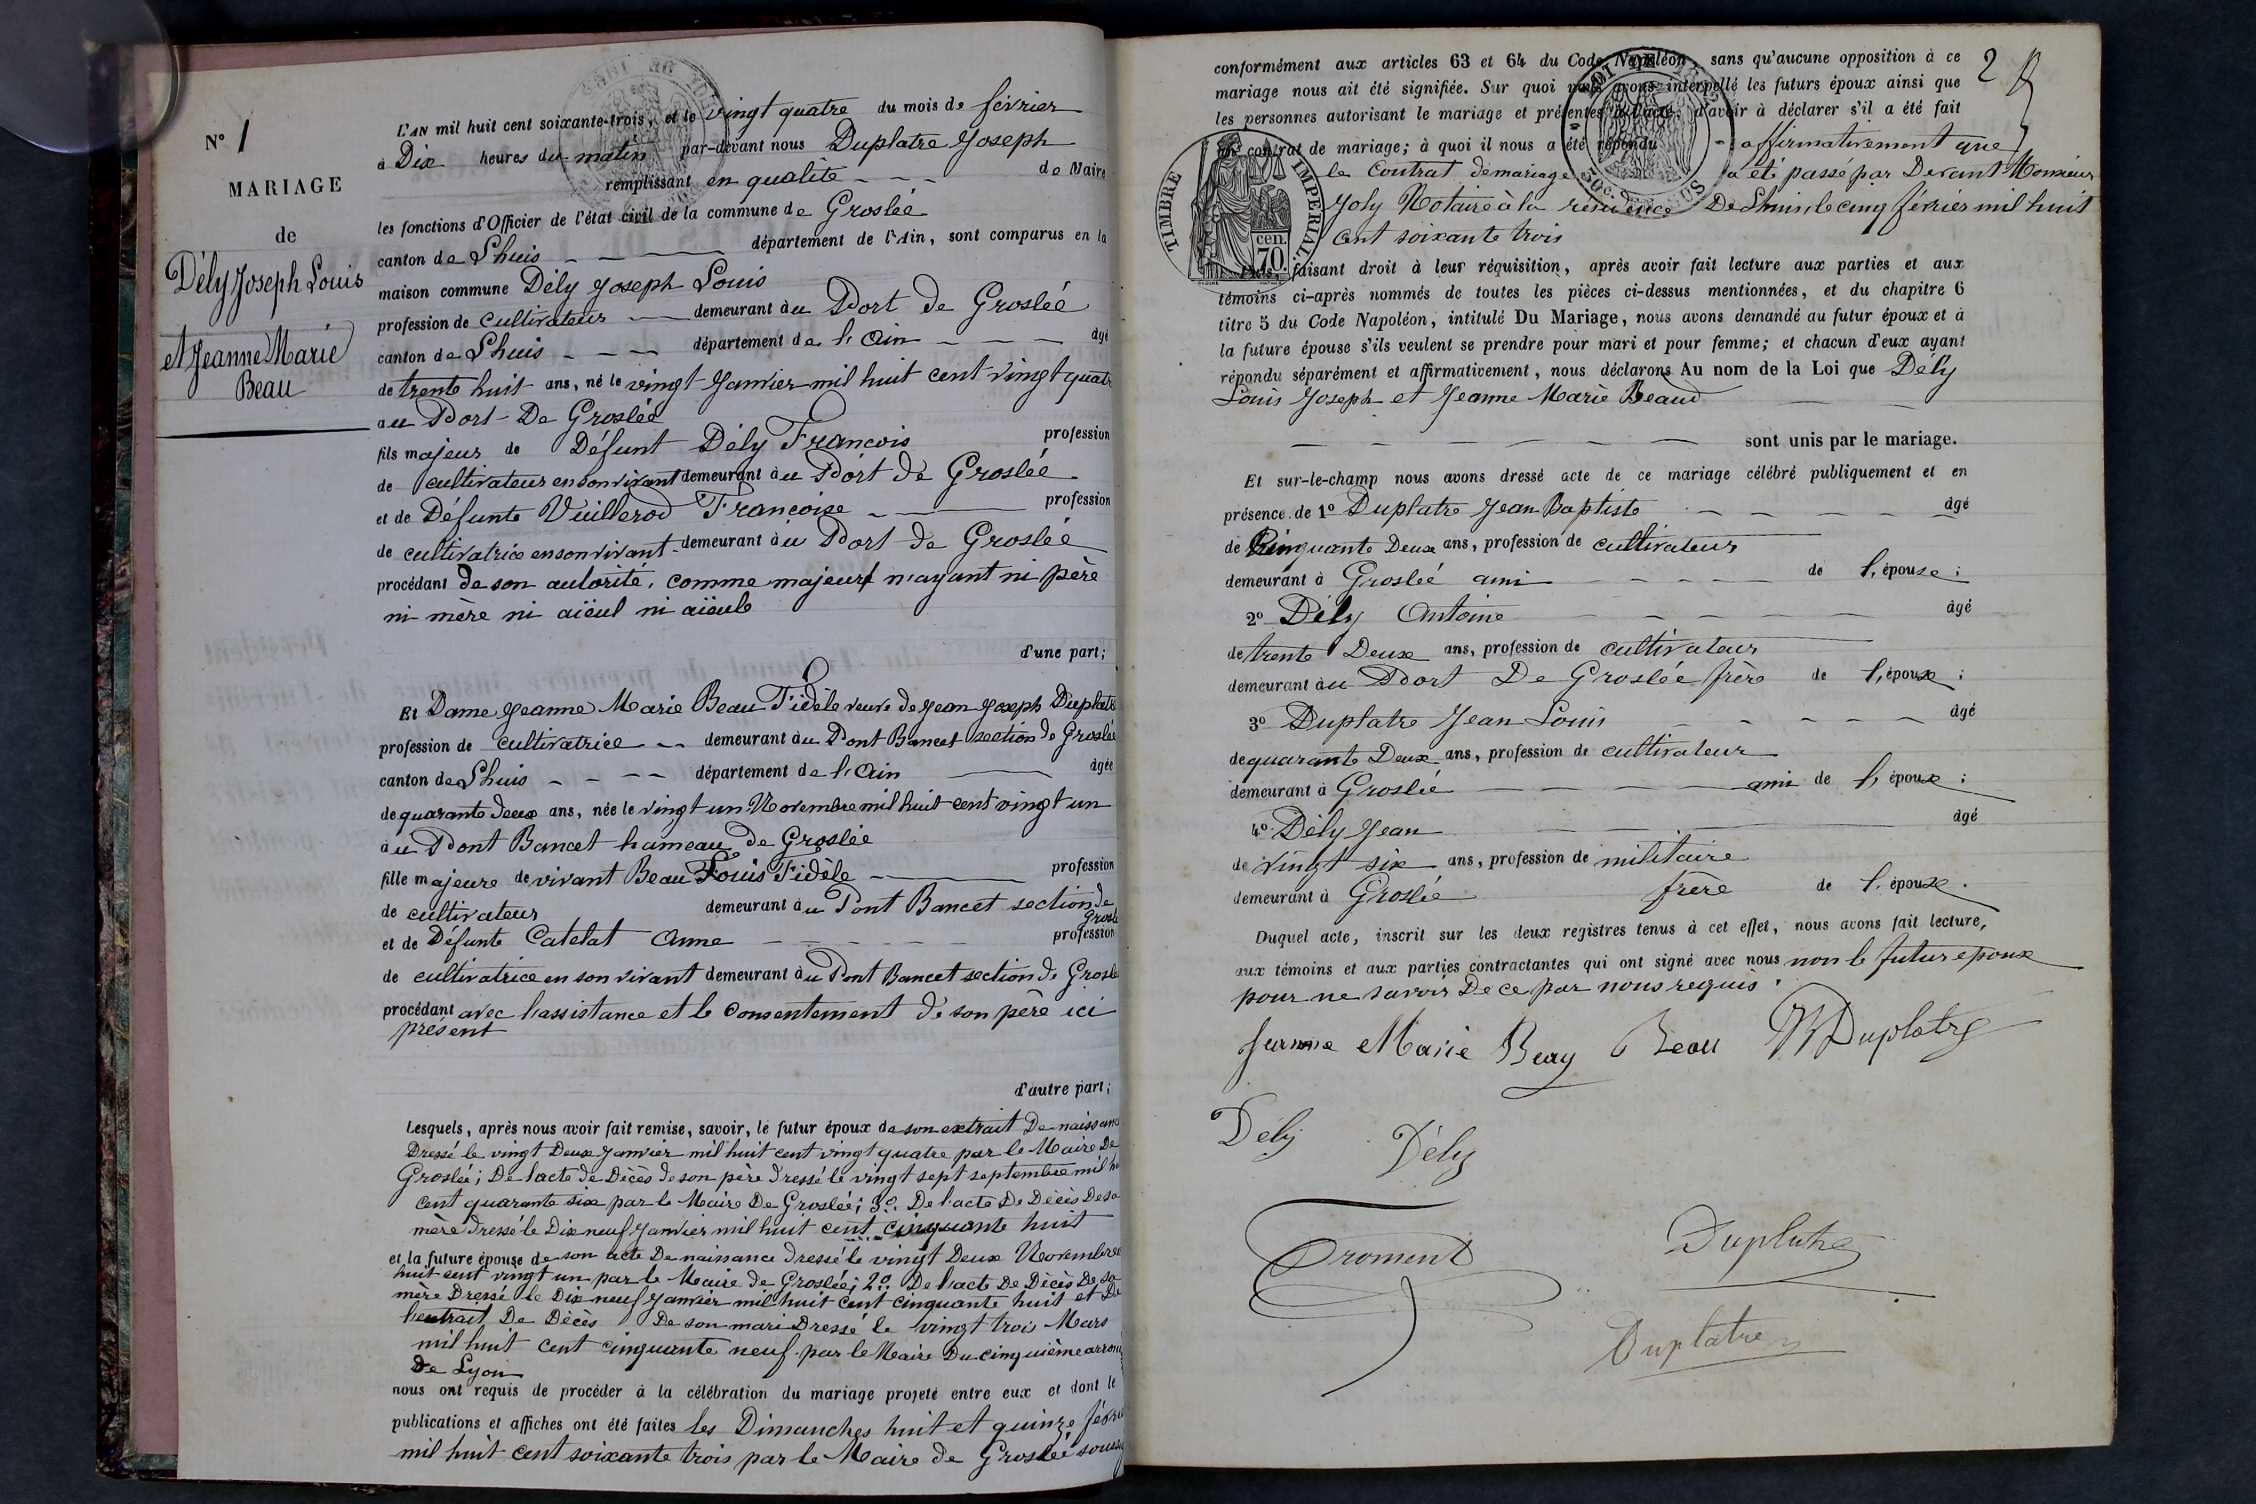 N° 1
MARIAGE
de
Dély Joseph Louis
et Jeanne Marie
Beau
L'AN mil huit cent soixante-trois, et le vingt quatre du mois de février
à Dix heures du matin par-devant nous Duplatre Joseph
remplissant en qualité de Maire
les fonctions d'Officier de l'état civil de la commune de Groslée
canton de Lhuis département de l'Ain, sont comparus en la
maison commune Dély Joseph Louis
profession de cultivateur demeurant au Port de Groslée
canton de Lhuis département de l'Ain âgé
de trente huit ans, né le vingt Janvier mil huit cent vingt quatre
au Port De Groslée
fils majeur de Défunt Dély Francois profession
de cultivateur en son vivant demeurant au Port de Groslée
et de Défunte Vuillerod Françoise profession
de cultivatrice en son vivant demeurant au Port de Groslée
procédant de son autorité, comme majeur n'ayant ni père
ni mère ni aïeul ni aïeule
d'une part;
Et Dame Jeanne Marie Beau Fidèle veuve de Jean Joseph Duplatre
profession de cultivatrice demeurant au Pont Bancet section de Groslée
canton de Lhuis département de l'Ain âgée
de quarante deux ans, née le vingt un Novembre mil huit cent vingt un
au Pont Bancet hameau de Groslée
fille majeure de vivant Beau Louis Fidèle profession
de cultivateur demeurant au Pont Bancet section de
Grosle
et de Défunte Catelat Anne profession
de cultivatrice en son vivant demeurant au Pont Bancet section de Grosle
procédant avec l'assistance et le consentement de son père ici
présent
d'autre part;
Lesquels, après nous avoir fait remise, savoir, le futur époux de son extrait De naissance
Dressé le vingt Deux Janvier mil huit cent vingt quatre par le Maire De
Groslée; De l'acte de Décès de son père dressé le vingt sept septembre mil hu
cent quarante six par le Maire De Groslée; 3°. De l'acte De Décès De sa
mère dressé le Dix neuf Janvier mil huit cent cinquante huit
et la future épouse de son acte De naissance dressé le vingt Deux Novembre
huit cent vingt un par le Maire de Groslée; 2°. De l'acte De Décès De sa
mère Dressé le Dix neuf Janvier mil huit cent cinquante huit et De
l'extrait De Décès De son mari Dressé le vingt trois Mars
mil huit cent cinquante neuf par le Maire Du cinquième arron
De Lyon
nous ont requis de procéder à la célébration du mariage projeté entre eux et dont le
publications et affiches ont été faites les Dimanches huit et quinze février
mil huit cent soixante trois par le Maire de Groslée soussig
2
conformément aux articles 63 et 64 du Code Napoléon, sans qu'aucune opposition à ce
mariage nous ait été signifiée. Sur quoi nous avons interpellé les futurs époux ainsi que
les personnes autorisant le mariage et présentes à l'acte, d'avoir à déclarer s'il a été fait
un contrat de mariage; à quoi il nous a été répondu affirmativement que
le contrat de mariage a été passé par Devant Monsieur
Joly Notaire à la résidence De Lhuis, le cinq février mil huit
cent soixante trois
TIMBRE IMPERIAL
70 cen.
50c.
Puis, faisant droit à leur réquisition, après avoir fait lecture aux parties et aux
témoins ci-après nommés de toutes les pièces ci-dessus mentionnées, et du chapitre 6
titre 5 du Code Napoléon, intitulé Du Mariage, nous avons demandé au futur époux et à
la future épouse s'ils veulent se prendre pour mari et pour femme; et chacun d'eux ayant
répondu séparément et affirmativement, nous déclarons Au nom de la Loi que Dély
Louis Joseph et Jeanne Marie Beaud
sont unis par le mariage.
Et sur-le-champ nous avons dressé acte de ce mariage célébré publiquement et en
présence de 1° Duplatre Jean Baptiste âgé
de Cinquante Deux ans, profession de cultivateur
demeurant à Groslée ami de l'épouse;
2° Dély Antoine âgé
de trente Deux ans, profession de cultivateur
demeurant au Port De Groslée frère de l'époux;
3° Duplatre Jean Louis âgé
de quarante Deux ans, profession de cultivateur
demeurant à Groslée ami de l'époux;
4° Dély Jean âgé
de vingt six ans, profession de militaire
demeurant à Groslée frère de l'époux.
Duquel acte, inscrit sur les deux registres tenus à cet effet, nous avons fait lecture,
aux témoins et aux parties contractantes qui ont signé avec nous non le futur epoux
pour ne savoir De ce par nous requis.
Jeanne Marie Beau Beau Duplatre
Dély Dély
Froment Duplatre
Duplatre